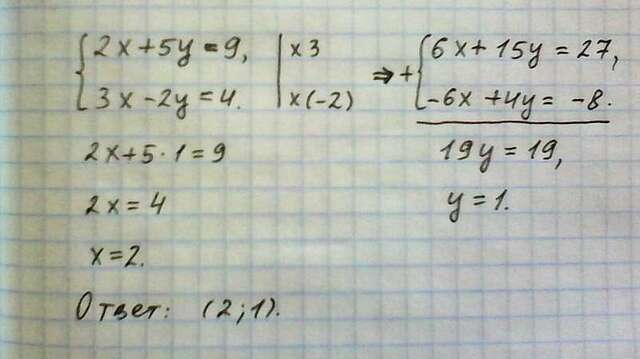 {2x+5y=9, | x3
{3x-2y=4. | x(-2)
⇒ + {6x+15y=27,
{-6x+4y=-8.
19y=19,
y=1.
2x+5·1=9
2x=4
x=2.
Ответ: (2;1).